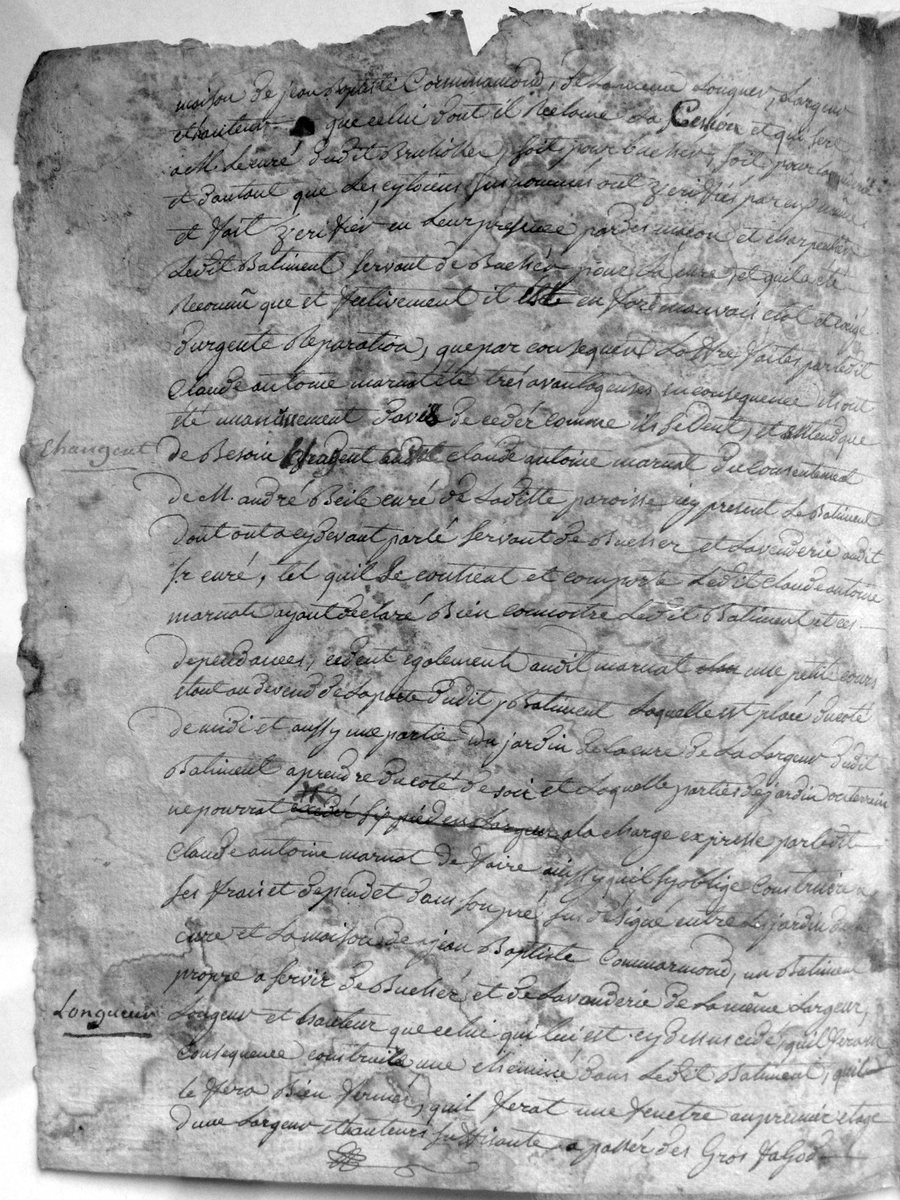 maison de jean Baptiste Commarmond, de la meme Longeur, Largeur
et hauteur que celui dont il Reclame La Cession et qui sera
a M. Le curé dudit Brulliolles, soit pour bucher, soit pour
et d'autant que Les cytoiens susnommés ont verifiés par eux même
et fait verifier en Leur presence par des macon et charpentier
Ledit Batiment servant de Bucher pour La cure, et quil a été
Reconnu que effectivement il est en fort mauvais etat et exige
d'urgente Reparation, que par consequent Loffre faites par ledit
Claude antoine marnat été très avantageuses en consequence ils ont
été unanimement d'avis de ceder comme ils cedent, et attendu que
de Besoin changent audit claude antoine marnat du consentement
changent
de M. andré Beile curé de Laditte paroisse icy present Le Batiment
dont on a cydevant parlé servant de Bucher et Lavenderie audit
sr curé, tel quil se contient et comporte Ledit Claude antoine
marnat ayant declaré Bien connoitre Ledit Batiment et ces
dependances, cedent egalement audit marnat une petit cours
etant audevend de La porte dudit Batiment Laquelle est placé du coté
de midi et aussy une partie du jardin de La cure de La Largeur dudit
Batiment aprendre du coté de soir et Laquelle parties de jardin ou terrein
ne pourrat excedé six pied en Largeur a la charge expresse par Ledit
Claude antoine marnat de faire ainssy quil sy oblige Construire a
ses frais et depend et dans son pré sus designé entre Le jardin de la
cure et La maison de jean Baptiste Commarmond, un Batiment
propre a servir de Bucher, et de Lavanderie de La même Largeur,
Longueur
Longeur et hauteur que celui qui lui est cy dessus cedé, quil ferat en
Consequence construire une cheminé dans Ledit Batiment, quil
le fera Bien fermer, quil ferat une fenetre au premier etage
d'une Largeur et hauteur suffisante a passer des Gros fagod